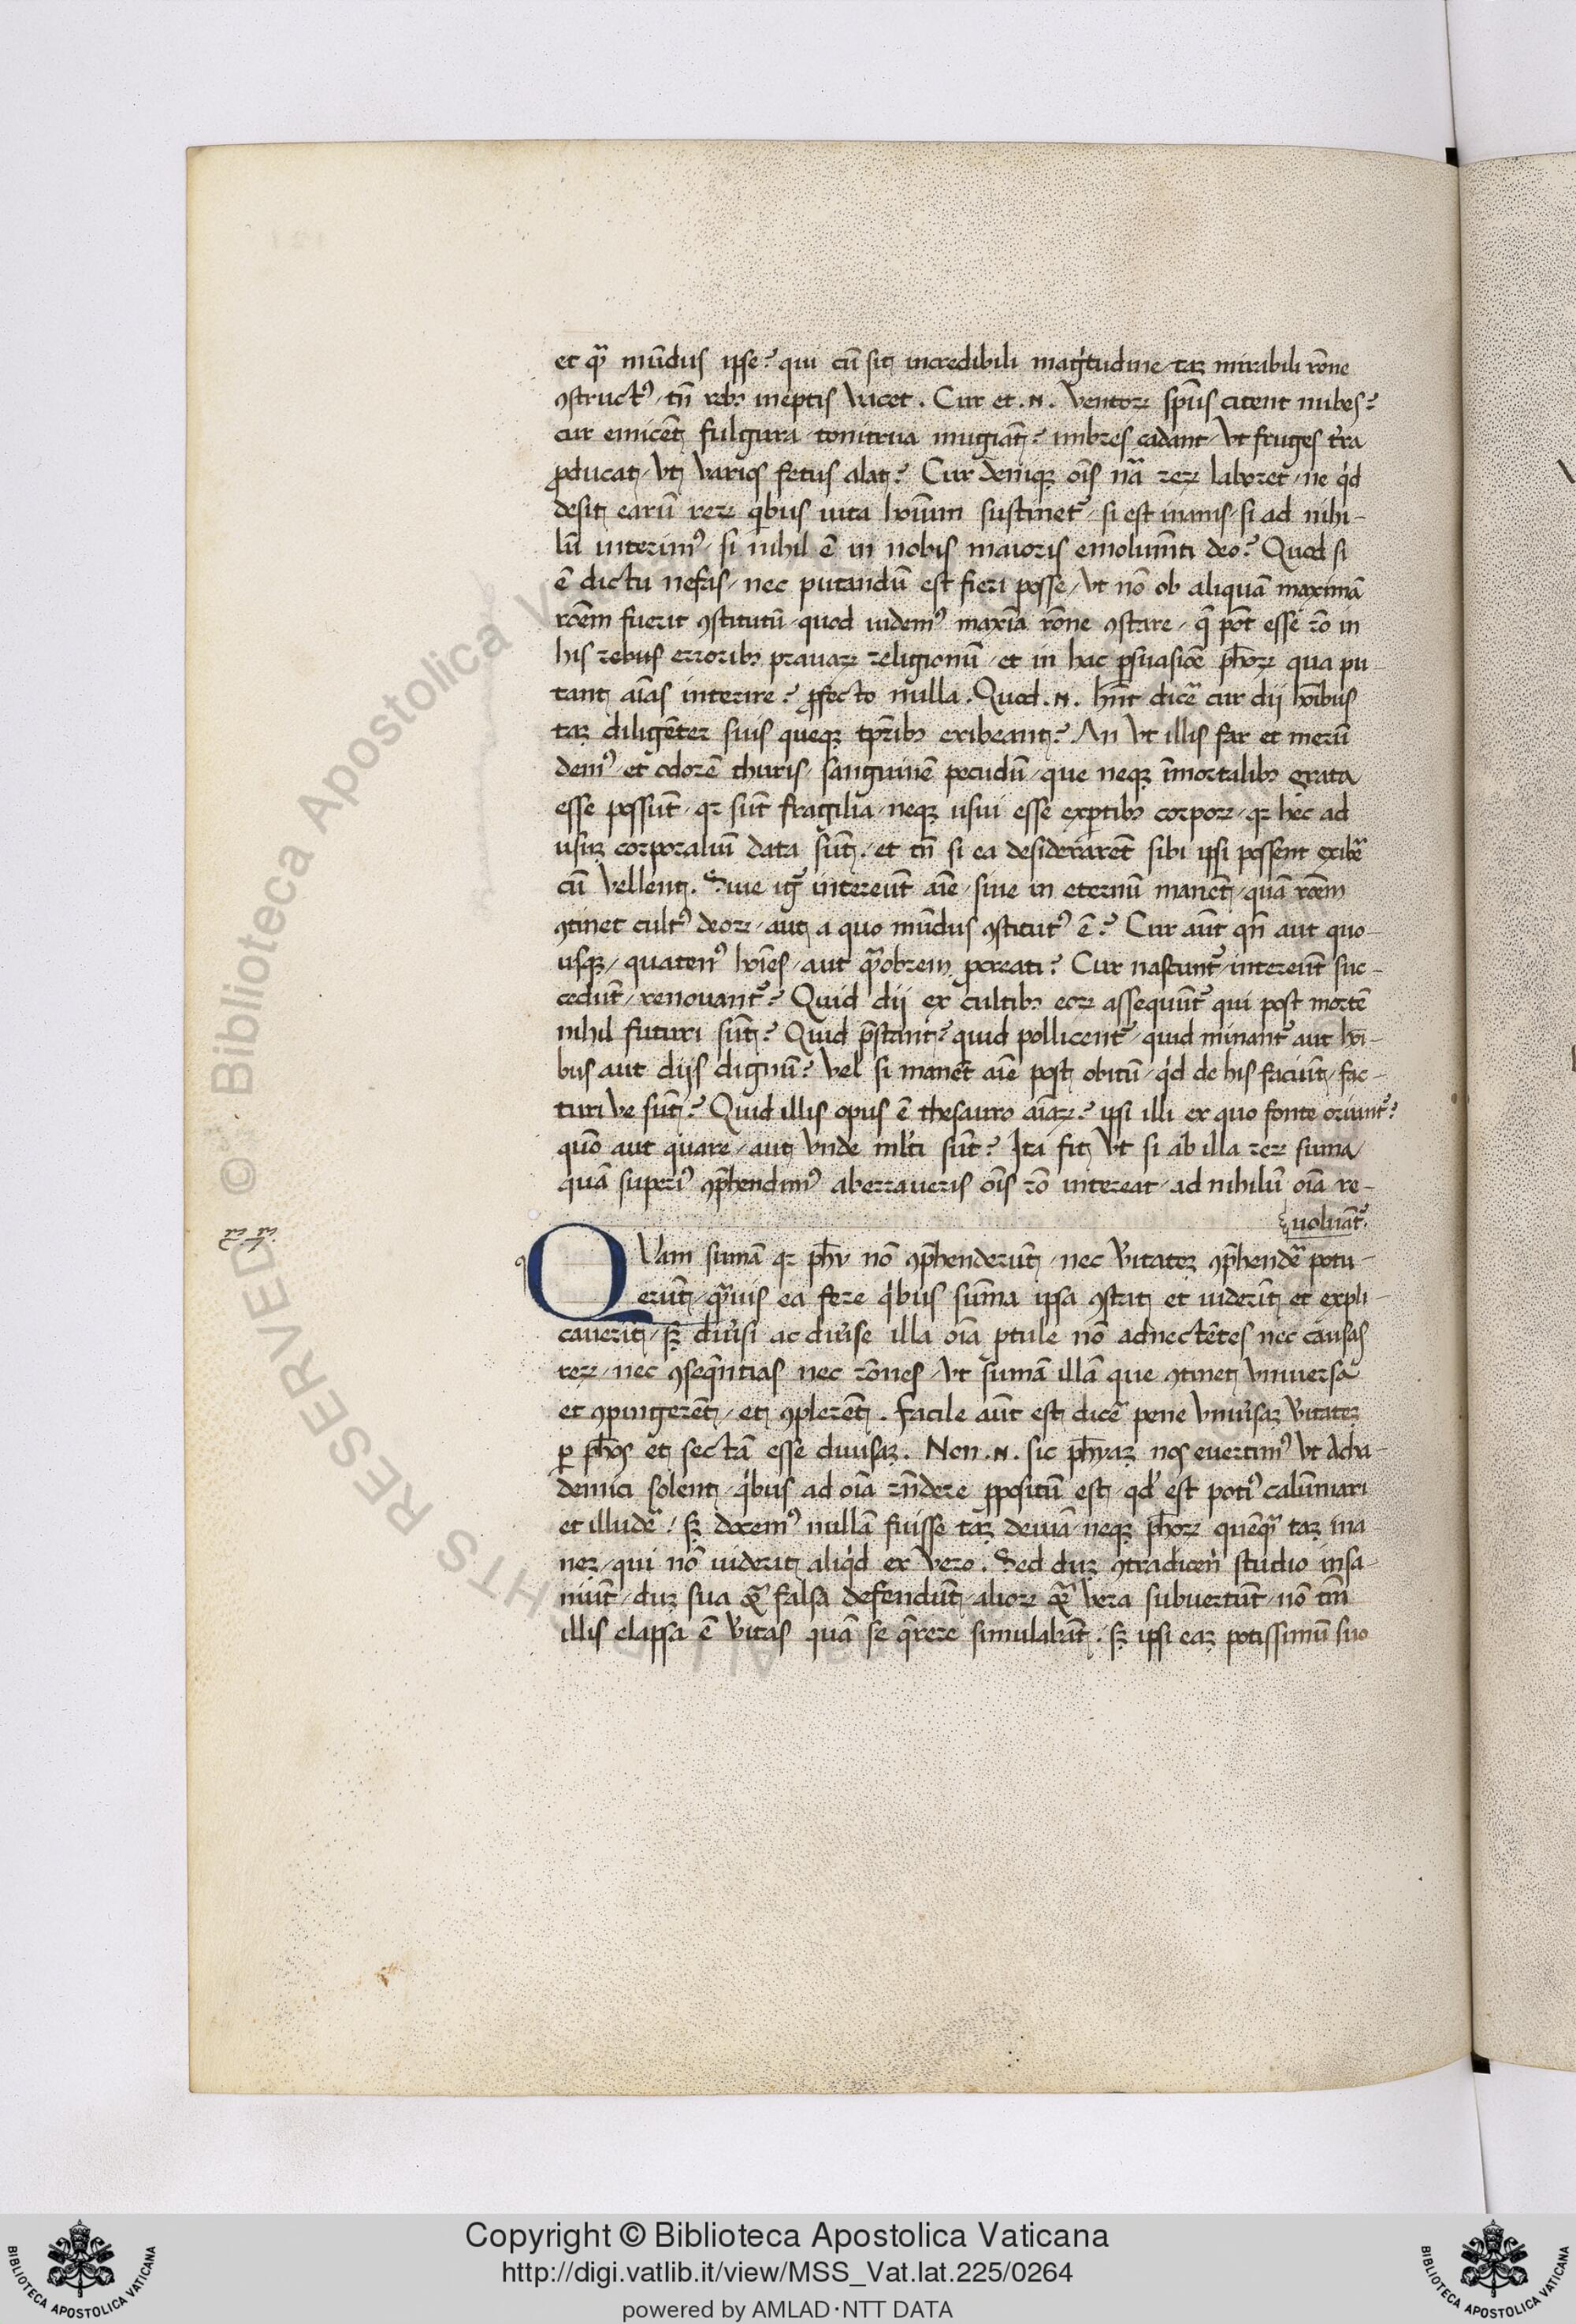 et qᷓ mūdus ipse? qui cū sit incredibili magͥtudine taʒ mirabili rōne
ꝯstructꝰ tn̄ rebꝫ ineptis vacet. Cur et .N. ventoꝝ sp̄us citent nubes?
cur emicēt fulgura tonitrua mugiāt? imbres cadant vt fruges t̄ra
ꝓducat vt varios fetus alat? Cur deniqꝫ oīs nāͣ reꝝ laboret ne qͥd
desit earū reꝝ qͥbus uita hoīum sustinet᷑ si est inanis si ad nihi-
lū interimꝰ si nihil ē in nobis maioris emolumt̄i deo? Quod si
ē dictu nefas nec putandū est fieri posse vt nō ob aliquā maximā
roēm fuerit ꝯstitutū quod uidemꝰ maxīa rōne ꝯstare q̄ pōt esse rō in
his rebus erroribꝫ prauaꝝ religionū et in hac ꝑsuasiōe ph̄oꝝ qua pu-
tant aīas interire? ꝓfecto nulla. Quod .N. hn̄t dicē cur dij hoībus
taʒ diligēter suis queqꝫ tꝑribꝫ exibeant? An vt illis far et merū
demꝰ et odorē thuris sanguinē pecudū que neqꝫ īmortalibꝫ grata
esse possūt qꝛ sūt fragilia neqꝫ usui esse exꝑtibꝫ corpoꝝ qꝛ hec ad
usuʒ corporaliū data sūt. et tn̄ si ea desiderarēt sibi ipsi possent exibē
cū vellent. Siue igͥ intereūt aīe siue in eternū manēt quā roēm
ꝯtinet cultꝰ deoꝝ aut a quo mūdus ꝯstitutꝰ ē? Cur aūt qn̄ aut quo-
usqꝫ quatenꝰ hoīes aut qᷓobrem ꝓcreati? Cur nascunt᷑ intereūt suc-
cedūt renouant᷑? Quid dij ex cultibꝫ eoꝝ assequūt᷑ qui post mortē
nihil futuri sūt? Quid p̄stant? quid pollicent᷑ quid minant᷑ aut hoī-
bus aut dijs dignū? Vel si manēt aīe post obitū qͥd de his faciūt fac-
turi ve sūt? Quid illis opus ē thesauro aīaꝝ? ipsi illi ex quo fonte oriunt᷑?
quō aut quare aut vnde ml̓ti sūt? Ita fit vt si ab illa reꝝ suma
quā supꝛiꝰ ꝯp̄hendimꝰ aberraueris oīs rō intereat ad nihilū oīa re-
uoluāt᷑.
QVam sumā qꝛ ph̄y nō ꝯp̄henderūt nec v̓itateʒ ꝯp̄hendē potu-
erūt qᷓuis ea fere qͥbus sūma ipsa ꝯstat et uiderīt et expli-
cauerīt sꝫ diu̓si ac diu̓se illa oīa ꝓtule nō adnectētes nec causas
reꝝ nec ꝯseqn̄tias nec rōnes vt sumā illā que ꝯtinet vniuersa
et ꝯpingerēt et ꝯplerēt. Facile aūt est dicē pene vniu̓saʒ v̓itateʒ
ꝑ ph̄os et sectā esse diuisaʒ. Non .N. sic ph̄yaʒ nos euertimꝰ vt Acha-
demici solent qͥbus ad oīa rn̄dere ꝓpositū est qd̓ est potiꝰ calūniari
et illudē sꝫ docemꝰ nullā fuisse taʒ deuiā neqꝫ ph̄oꝝ quēqᷓ taʒ ina
neʒ qui nō uiderit aliqͥd ex vero. Sed duʒ ꝯtradicen̄ studio insa-
niūt duʒ sua qᷓ falsa defendūt alioꝝ qᷓ vera subuertūt nō tm̄
illis elapsa ē v̓itas quā se q̄rere simulabāt. sꝫ ipsi eaʒ potissimū suo
© Biblioteca Apostolica Vaticana
Copyright © Biblioteca Apostolica Vaticana
http://digi.vatlib.it/view/MSS_Vat.lat.225/0264
powered by AMLAD·NTT DATA
BIBLIOTECA APOSTOLICA VATICANA
BIBLIOTECA APOSTOLICA VATICANA